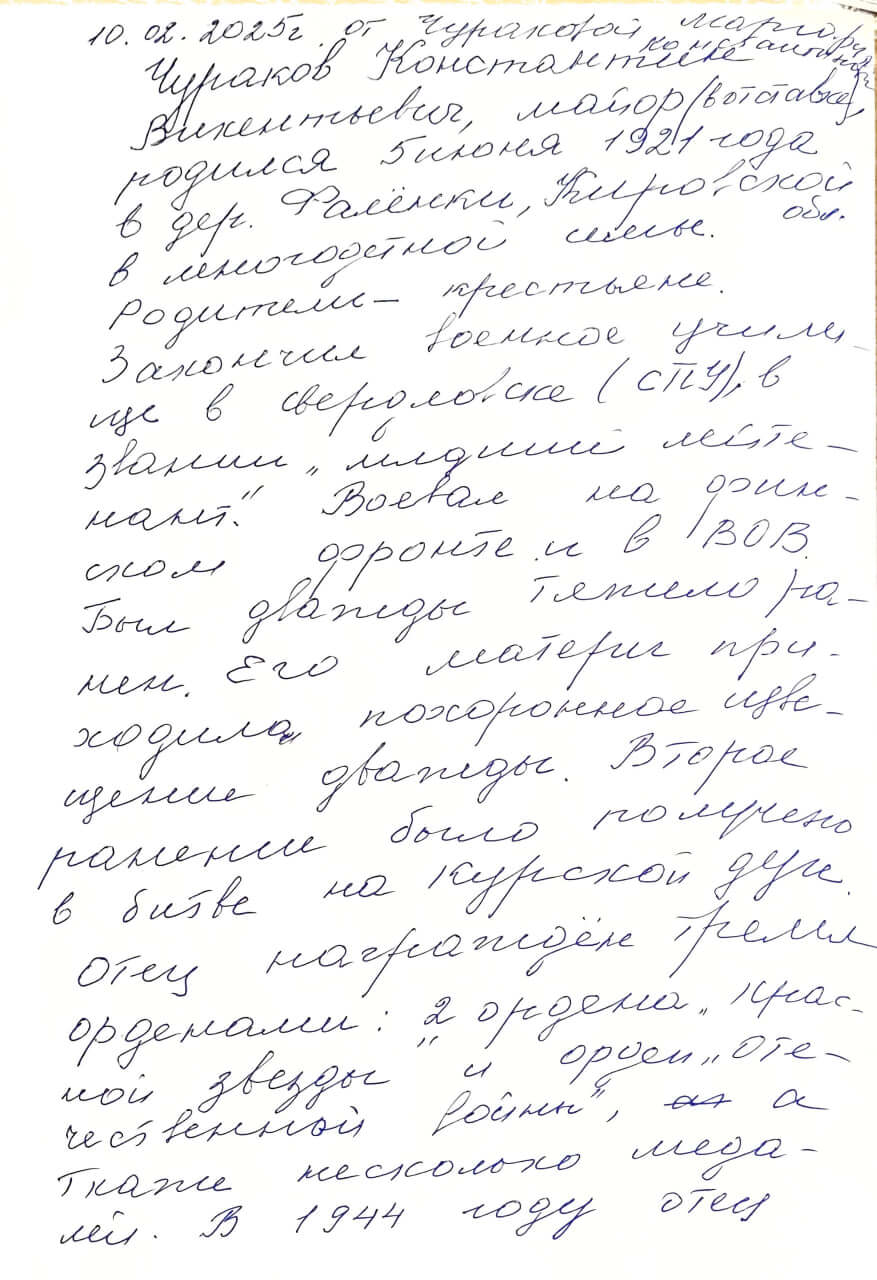 10.02.2025г. от Чураковой Маргариты
Константиновны
Чураков Константин
Викентьевич, майор (в отставке),
родился 5 июня 1921 года
в дер. Фалёнки, Кировской
обл.
в многодетной семье.
Родители – крестьяне.
Закончил военное учили-
ще в Свердловске (СПУ), в
звании „младший лейте-
нант". Воевал на фин-
ском фронте и в ВОВ.
Был дважды тяжело ра-
нен. Его матери при-
ходило похоронное изве-
щение дважды. Второе
ранение было получено
в битве на Курской дуге.
Отец награждён тремя
орденами: 2 ордена „Крас-
ной звезды" и орден „Оте-
чественной войны", а
также несколько меда-
лей. В 1944 году отец